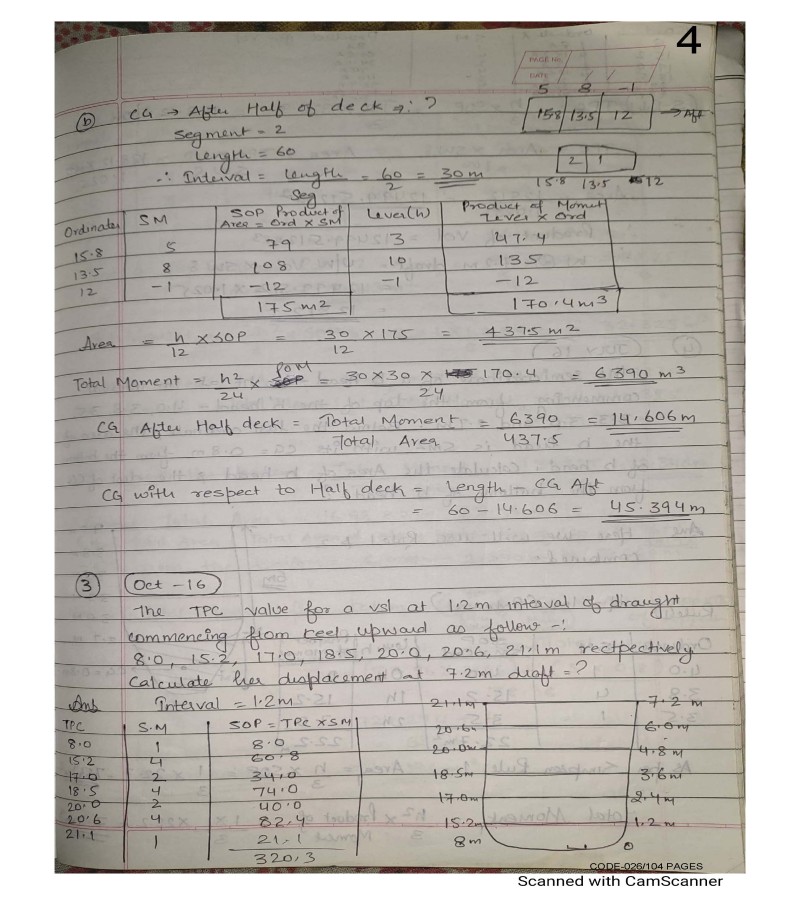 4
PAGE NO.
DATE / /
5 8 -1
15.8 13.5 12 → Aft
(b) CG → After Half of deck ⇒: ?
Segment = 2
Length = 60
∴ Interval = Length / Seg = 60 / 2 = 30 m
2 1
15.8 13.5 12
Ordinates | SM | SOP Product of Area = Ord x SM | Lever(h) | Product of Momet Lever x Ord
15.8 | 5 | 79 | 3 | 47.4
13.5 | 8 | 108 | 10 | 135
12 | -1 | -12 | -1 | -12
175 m2 | 170.4 m3
Area = h/12 x SOP = 30/12 x 175 = 437.5 m2
Total Moment = h2/24 x POM = 30 x 30 / 24 x 170.4 = 6390 m3
CG After Half deck = Total Moment / Total Area = 6390 / 437.5 = 14.606 m
CG with respect to Half deck = Length - CG Aft
= 60 - 14.606 = 45.394 m
(3) Oct - 16
The TPC value for a vsl at 1.2m interval of draught
commencing from keel upward as follow -:
8.0, 15.2, 17.0, 18.5, 20.0, 20.6, 21.1m rectpectively
Calculate her displacement at 7.2m draft = ?
Ans Interval = 1.2m
TPC | S.M | SOP = TPC x SM
8.0 | 1 | 8.0
15.2 | 4 | 60.8
17.0 | 2 | 34.0
18.5 | 4 | 74.0
20.0 | 2 | 40.0
20.6 | 4 | 82.4
21.1 | 1 | 21.1
320.3
21.1m 7.2 m
20.6m 6.0 m
20.0m 4.8 m
18.5m 3.6 m
17.0m 2.4 m
15.2m 1.2 m
8m 0
CODE-026/104 PAGES
Scanned with CamScanner